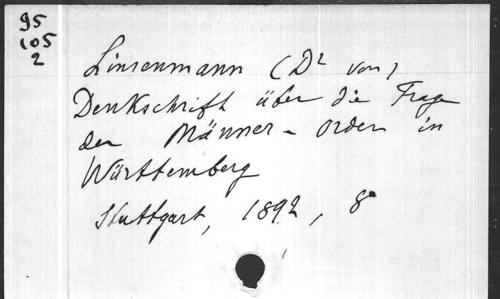 95
105
2
Linsenmann (Dr von)
Denkschrift über die Frage
der Männer-orden in
Württemberg
Stuttgart, 1892, 8°